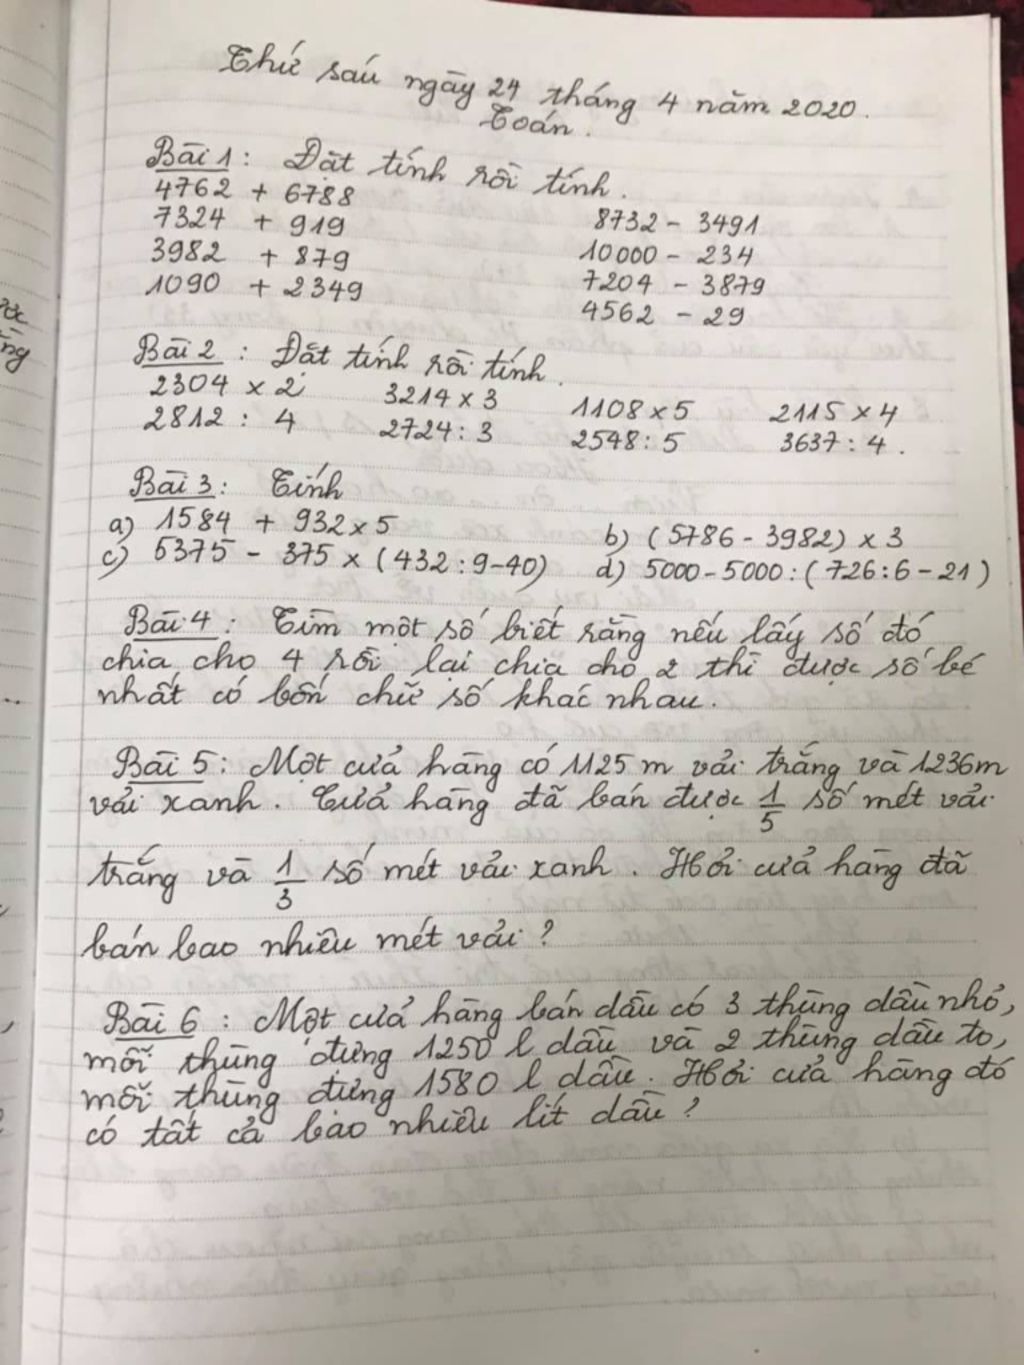 Thứ sáu ngày 24 tháng 4 năm 2020.
Toán.
Bài 1: Đặt tính rồi tính.
4762 + 6788
7324 + 919
3982 + 879
1090 + 2349
8732 - 3491
10000 - 234
7204 - 3879
4562 - 29
Bài 2: Đặt tính rồi tính.
2304 x 2 3214 x 3 1108 x 5 2115 x 4
2812 : 4 2724 : 3 2548 : 5 3637 : 4.
Bài 3: Tính
a) 1584 + 932 x 5 b) (5786 - 3982) x 3
c) 5375 - 375 x (432 : 9 - 40) d) 5000 - 5000 : (726 : 6 - 21)
Bài 4: Tìm một số biết rằng nếu lấy số đó
chia cho 4 rồi lại chia cho 2 thì được số bé
nhất có bốn chữ số khác nhau.
Bài 5: Một cửa hàng có 1125 m vải trắng và 1236m
vải xanh. Cửa hàng đã bán được 1/5 số mét vải
trắng và 1/3 số mét vải xanh. Hỏi cửa hàng đã
bán bao nhiêu mét vải?
Bài 6: Một cửa hàng bán dầu có 3 thùng dầu nhỏ,
mỗi thùng đựng 1250 l dầu và 2 thùng dầu to,
mỗi thùng đựng 1580 l dầu. Hỏi cửa hàng đó
có tất cả bao nhiêu lít dầu?